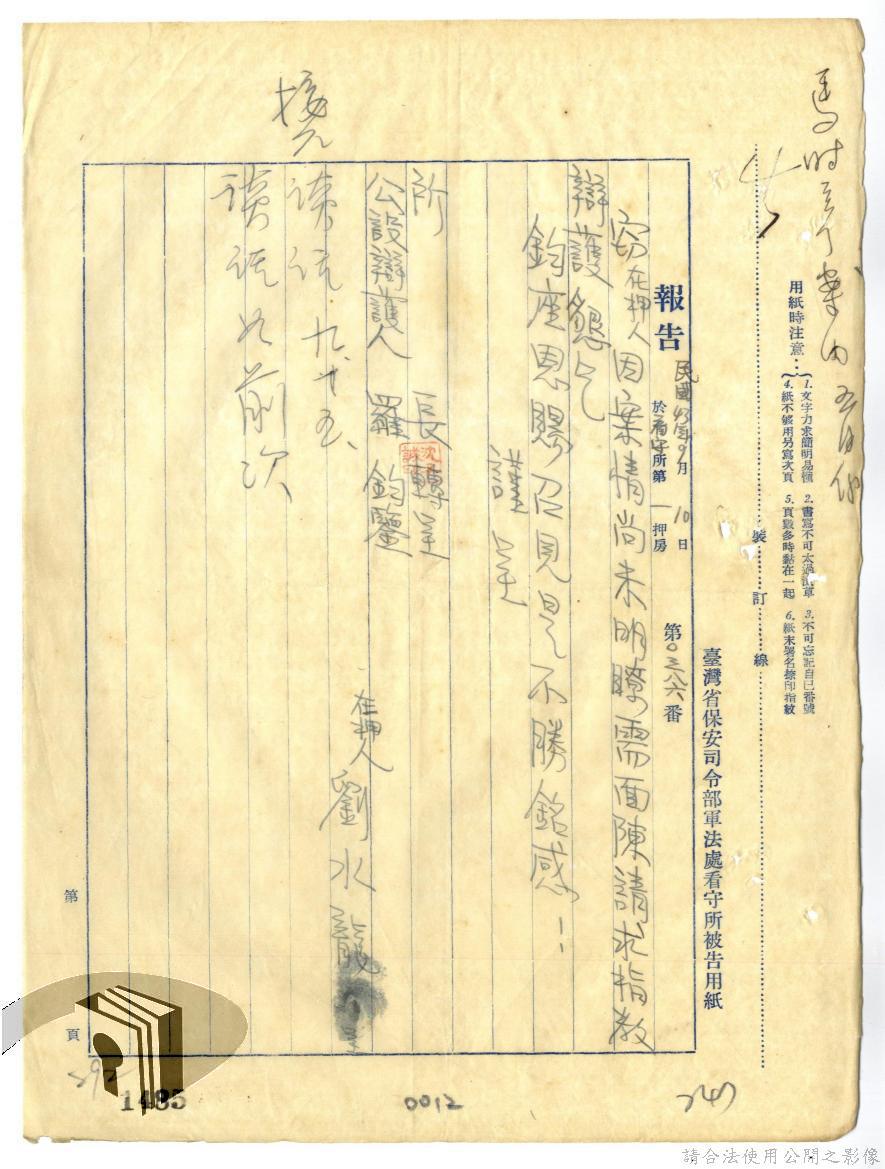 用紙時注意：
1. 文字力求簡明易懂 2. 書寫不可太過潦草 3. 不可忘記自己番號
4. 紙不够用另寫次頁 5. 頁數多時黏在一起 6. 紙末署名捺印指紋
裝訂線
臺灣省保安司令部軍法處看守所被告用紙
報告 民國43年9月10日 於看守所第一押房 第〇三八六番
窃在押人因案情尚未明瞭需面陳請求指教
辯護懇乞
鈞座恩賜召見是不勝銘感
謹呈
所長轉呈
沈誠
公設辯護人 羅 鈞鑒
在押人 劉水龍
談話如前次
第 頁
1485
0012
247
請合法使用公開之影像